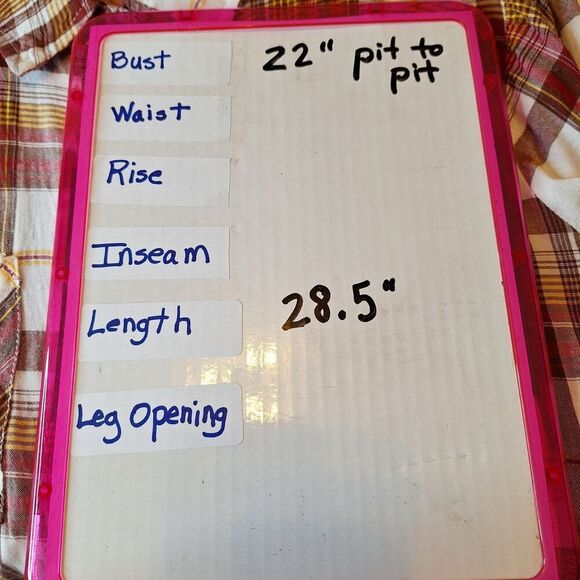 Bust 22" pit to
pit
Waist
Rise
Inseam
Length 28.5"
Leg Opening